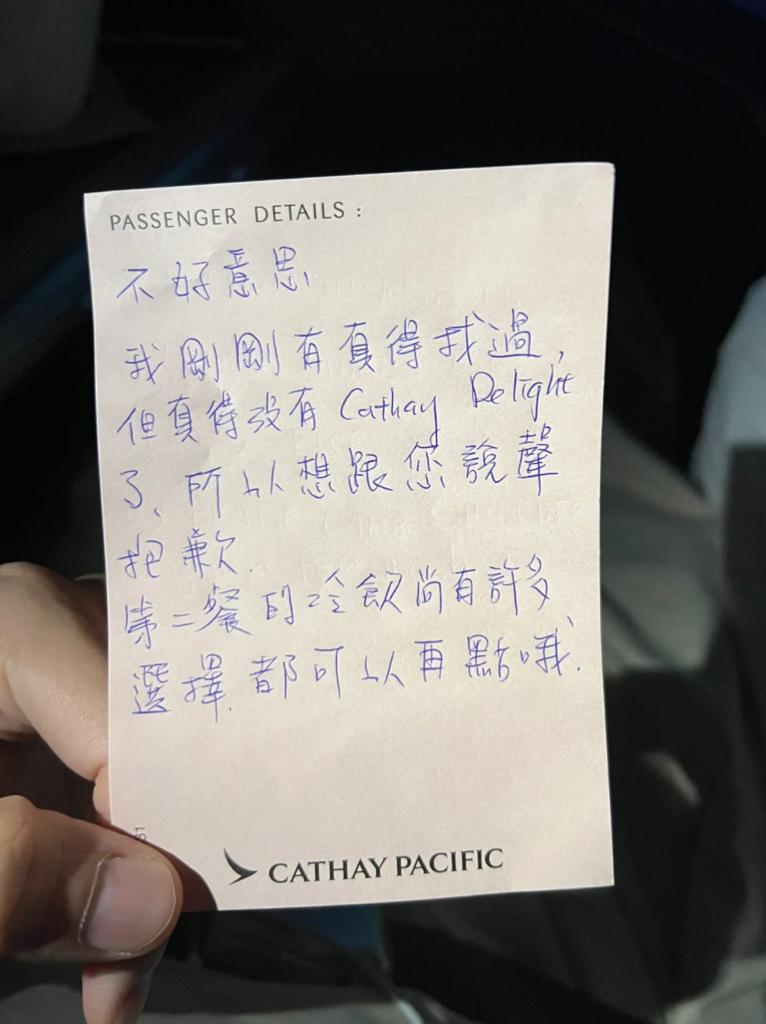 PASSENGER DETAILS :
不好意思
我剛剛有真得找過,
但真得沒有 Cathay Delight
了、所以想跟您說聲
抱歉.
第二餐的冷飲尚有許多
選擇.都可以再點哦.
CATHAY PACIFIC